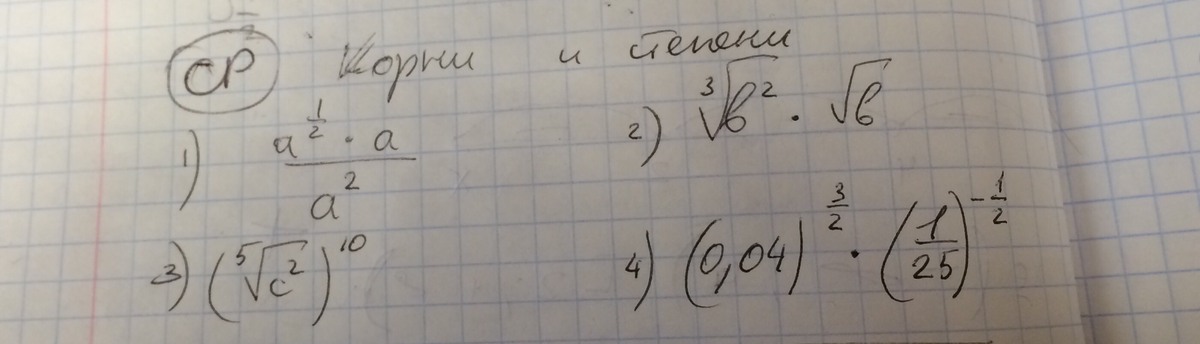 СР Корни и степени
1) a^(1/2) · a / a^2 2) ∛(b^2) · √b
3) (⁵√(c^2))^10 4) (0,04)^(3/2) · (1/25)^(-1/2)